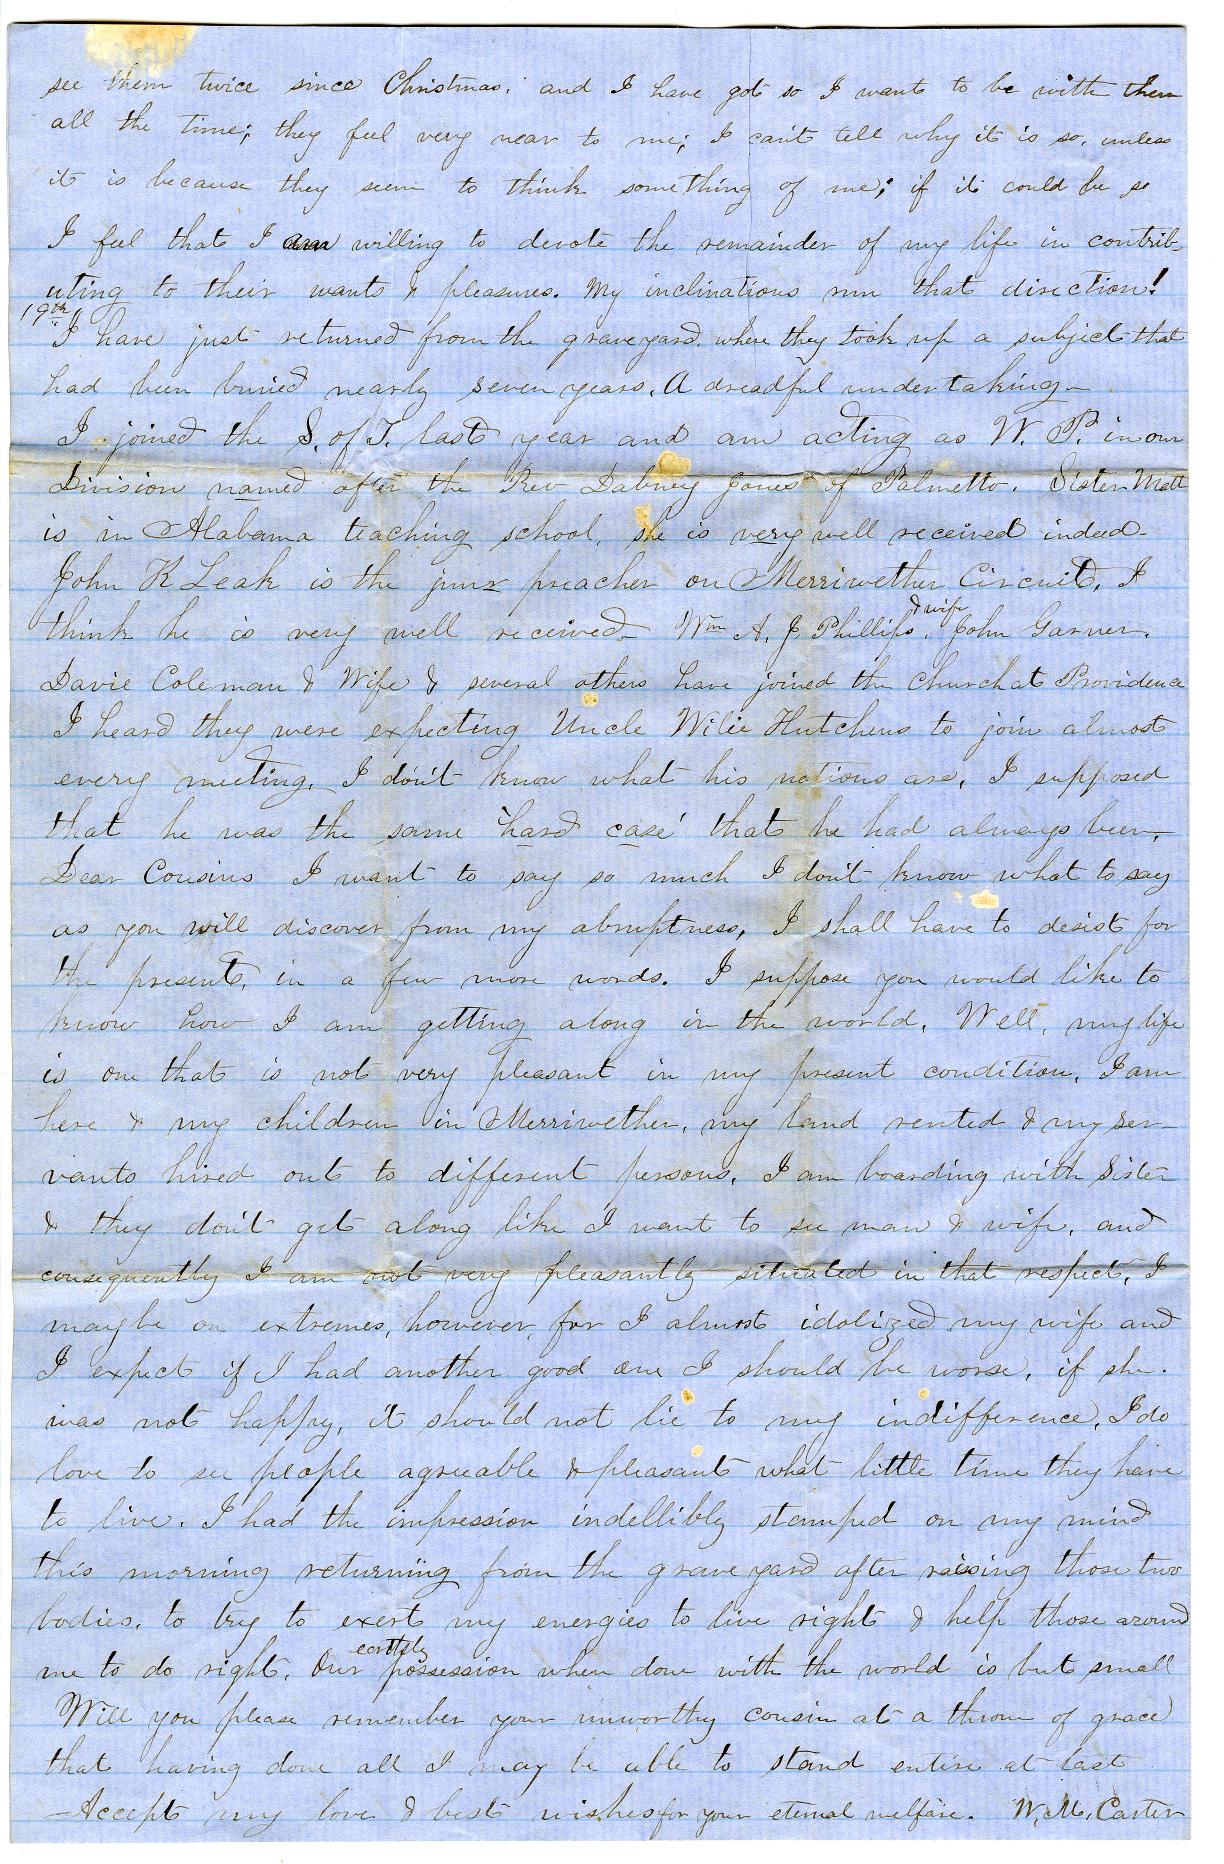 see them twice since Christmas. and I have got so I want to be with them
all the time; they feel very near to me; I can't tell why it is so, unless
it is because they seem to think something of me; if it could be so
I feel that I am willing to devote the remainder of my life in contrib-
uting to their wants & pleasures. My inclinations run that direction!
19th "I have just returned from the graveyard, where they took up a subject that
had been buried nearly seven years. A dreadful undertaking—
I joined the S. of T. last year and am acting as W. P. in our
Division named after the Rev Dabney Jones of Palmetto. Sister Matt
is in Alabama teaching school, she is very well received indeed—
John K Leak is the junr preacher on Merriwether Circuit, I
think he is very well received— Wm A. J Phillips & wife, John Garner,
Davie Coleman & Wife & several others have joined the church at Providence
I heard they were expecting Uncle Wilie Hutchens to join almost
every meeting, I don't know what his notions are, I supposed
that he was the same 'hard case' that he had always been,
Dear Cousins I want to say so much I don't know what to say
as you will discover from my abruptness, I shall have to desist for
the present, in a few more words. I suppose you would like to
know how I am getting along in the world. Well, my life
is one that is not very pleasant in my present condition, I am
here & my children in Merriwether, my land rented & my ser-
vants hired out to different persons, I am boarding with Sister
& they don't get along like I want to see man & wife, and
consequently I am not very pleasantly situated in that respect, I
maybe on extremes, however, for I almost idolized my wife and
I expect if I had another good one I should be worse, if she
was not happy, it should not lie to my indifference, I do
love to see people agreeable & pleasant what little time they have
to live. I had the impression indellibly stamped on my mind
this morning returning from the grave yard after raising those two
bodies, to try to exert my energies to live right & help those around
me to do right. Our earthly possession when done with the world is but small
Will you please remember your unworthy cousin at a throne of grace
that having done all I may be able to stand entire at last
—Accept my love & best wishes for your eternal welfare. W. M. Carter